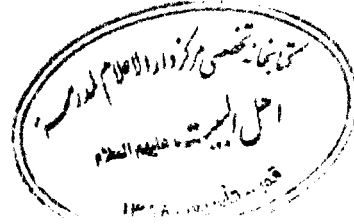 کتابخانه تخصصی مرکز دار الاعلام لمدرسة
اهل البیت علیهم السلام
قم